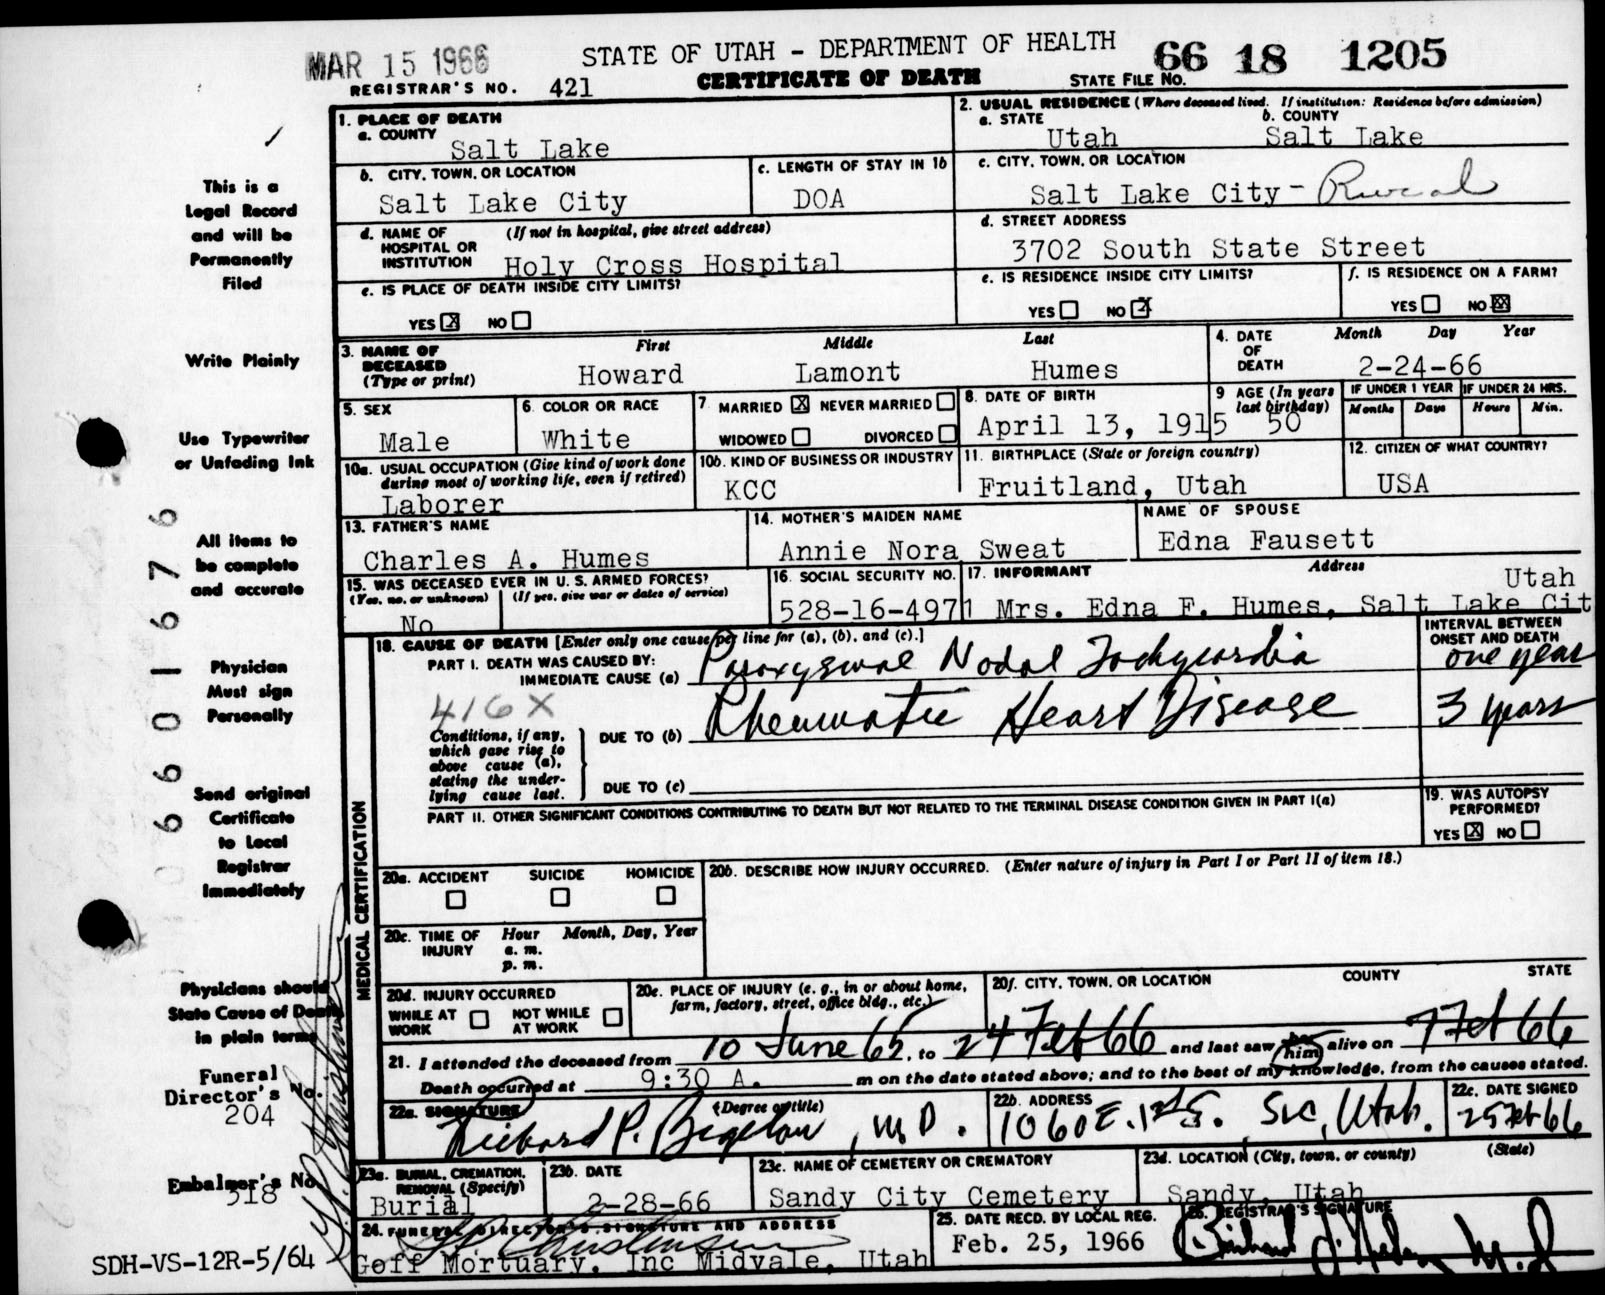 MAR 15 1966
STATE OF UTAH - DEPARTMENT OF HEALTH
66 18 1205
REGISTRAR'S NO. 421
CERTIFICATE OF DEATH
STATE FILE NO.
This is a
Legal Record
and will be
Permanently
Filed
Write Plainly
Use Typewriter
or Unfading Ink
All items to
be complete
and accurate
Physician
Must sign
Personally
Send original
Certificate
to Local
Registrar
Immediately
Physicians should
State Cause of Death
in plain terms
Funeral
Director's No.
204
Embalmer's No.
318
SDH-VS-12R-5/64
0660 1676
1. PLACE OF DEATH
a. COUNTY
Salt Lake
2. USUAL RESIDENCE (Where deceased lived. If institution: Residence before admission)
a. STATE
Utah
b. COUNTY
Salt Lake
b. CITY, TOWN, OR LOCATION
Salt Lake City
c. LENGTH OF STAY IN 1b
DOA
c. CITY, TOWN, OR LOCATION
Salt Lake City - Rural
d. NAME OF HOSPITAL OR INSTITUTION
(If not in hospital, give street address)
Holy Cross Hospital
d. STREET ADDRESS
3702 South State Street
e. IS PLACE OF DEATH INSIDE CITY LIMITS?
YES X NO
e. IS RESIDENCE INSIDE CITY LIMITS?
YES NO X
f. IS RESIDENCE ON A FARM?
YES NO X
3. NAME OF DECEASED
(Type or print)
First Middle Last
Howard Lamont Humes
4. DATE OF DEATH
Month Day Year
2-24-66
5. SEX
Male
6. COLOR OR RACE
White
7. MARRIED X NEVER MARRIED
WIDOWED DIVORCED
8. DATE OF BIRTH
April 13, 1915
9 AGE (In years last birthday)
50
IF UNDER 1 YEAR
Months Days
IF UNDER 24 HRS.
Hours Min.
10a. USUAL OCCUPATION (Give kind of work done during most of working life, even if retired)
Laborer
10b. KIND OF BUSINESS OR INDUSTRY
KCC
11. BIRTHPLACE (State or foreign country)
Fruitland, Utah
12. CITIZEN OF WHAT COUNTRY?
USA
13. FATHER'S NAME
Charles A. Humes
14. MOTHER'S MAIDEN NAME
Annie Nora Sweat
NAME OF SPOUSE
Edna Fausett
15. WAS DECEASED EVER IN U. S. ARMED FORCES?
(Yes, no, or unknown) (If yes, give war or dates of service)
No
16. SOCIAL SECURITY NO.
528-16-4971
17. INFORMANT Address
Utah
Mrs. Edna F. Humes, Salt Lake Cit
18. CAUSE OF DEATH [Enter only one cause per line for (a), (b), and (c).]
PART I. DEATH WAS CAUSED BY:
IMMEDIATE CAUSE (a) Paroxysmal Nodal Tachycardia
INTERVAL BETWEEN ONSET AND DEATH
one year
416X
Conditions, if any, which gave rise to above cause (a), stating the under-lying cause last.
DUE TO (b) Rheumatic Heart Disease
3 years
DUE TO (c)
PART II. OTHER SIGNIFICANT CONDITIONS CONTRIBUTING TO DEATH BUT NOT RELATED TO THE TERMINAL DISEASE CONDITION GIVEN IN PART I(a)
19. WAS AUTOPSY PERFORMED?
YES X NO
MEDICAL CERTIFICATION
20a. ACCIDENT SUICIDE HOMICIDE
20b. DESCRIBE HOW INJURY OCCURRED. (Enter nature of injury in Part I or Part II of item 18.)
20c. TIME OF INJURY
Hour Month, Day, Year
a. m.
p. m.
20d. INJURY OCCURRED
WHILE AT WORK NOT WHILE AT WORK
20e. PLACE OF INJURY (e. g., in or about home, farm, factory, street, office bldg., etc.)
20f. CITY, TOWN, OR LOCATION COUNTY STATE
21. I attended the deceased from 10 June 65, to 24 Feb 66 and last saw him alive on 7 Feb 66
Death occurred at 9:30 A. m on the date stated above; and to the best of my knowledge, from the causes stated.
22a. SIGNATURE (Degree or title)
Richard P. Bigelow, M.D.
22b. ADDRESS
1060 E. 1st S. SLC, Utah.
22c. DATE SIGNED
25 Feb 66
23a. BURIAL, CREMATION, REMOVAL (Specify)
Burial
23b. DATE
2-28-66
23c. NAME OF CEMETERY OR CREMATORY
Sandy City Cemetery
23d. LOCATION (City, town, or county) (State)
Sandy, Utah
24. FUNERAL DIRECTOR'S SIGNATURE AND ADDRESS
Goff Mortuary, Inc Midvale, Utah
25. DATE RECD. BY LOCAL REG.
Feb. 25, 1966
26. REGISTRAR'S SIGNATURE